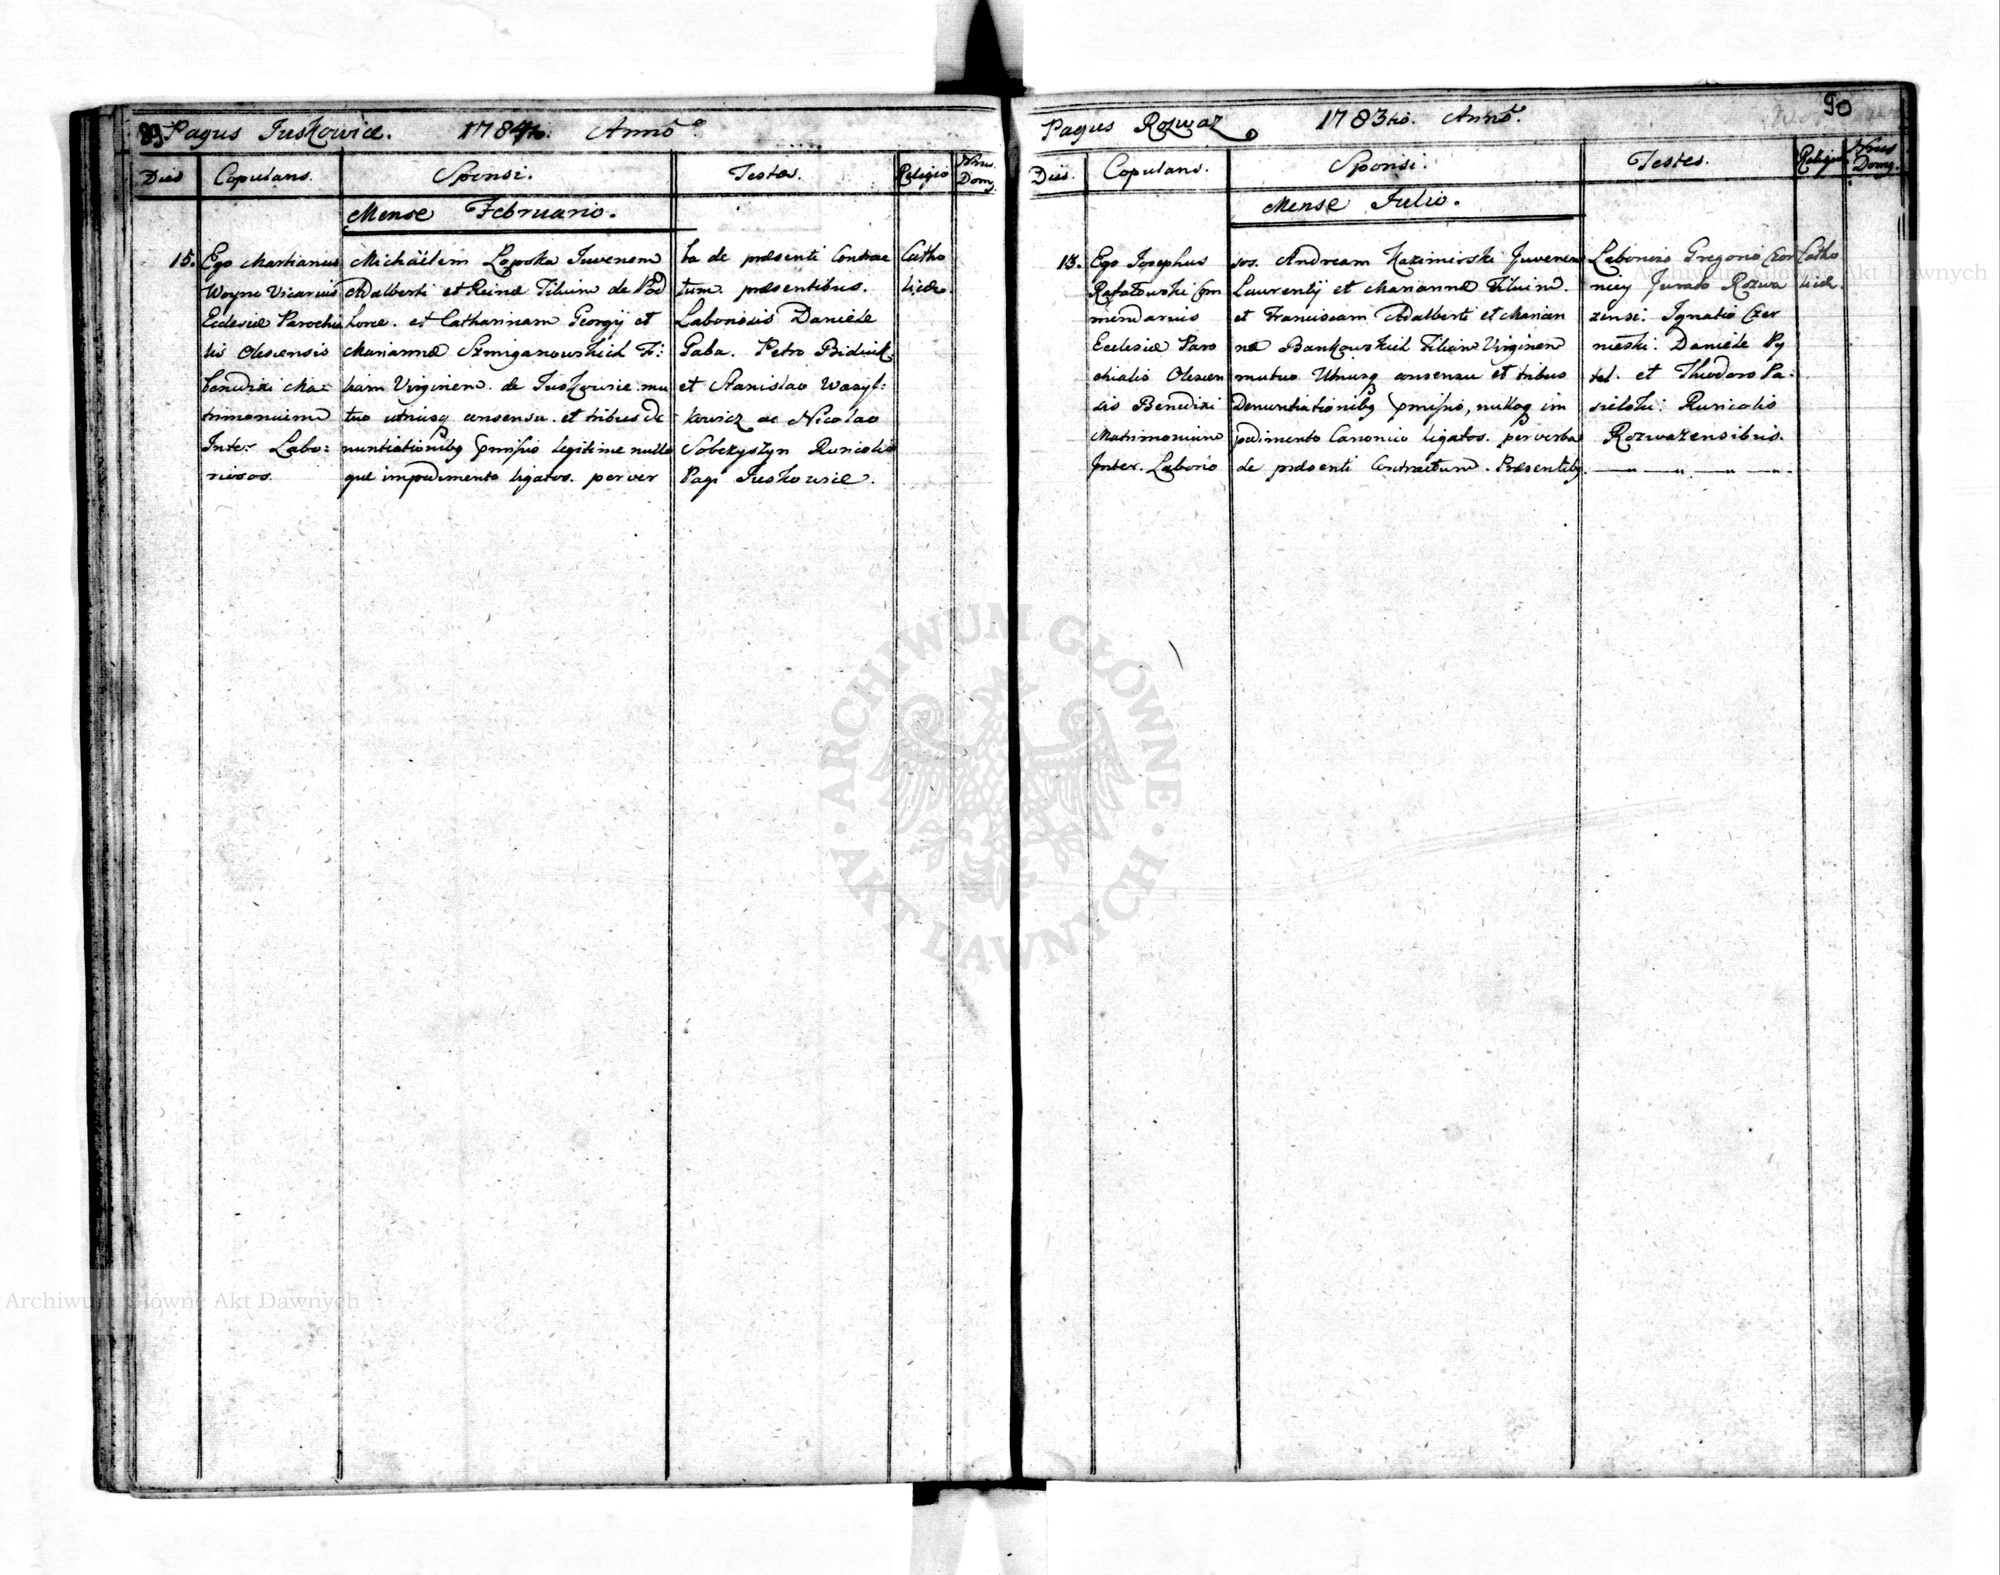 89. Pagus Juskowice. 1784to. Anno
Dies Copulans. Sponsi. Testes. Religio Nrus Domg.
Mense Februario.
15. Ego Martianus
Woyna Vicarius
Ecclesiæ Parochia
lis Olesiensis
benedixi Ma=
trimonium
Inter Labo:
riosos.
Michaëlem Lopotka Juvenem
Adalberti et Reinæ Filium de Pod
horce. et Catharinam Georgij et
Mariannæ Szmiganowskich Fi:
liam Virginem. de Juskowice mu
tuo utriusq consensu. et tribus de
nuntiationibg pmissis legitime nullo
que impedimento ligatos. per ver
ba de præsenti Contrac
tum. præsentibus.
Laboriosis Daniele
Gaba. Petro Bidiuk
et Stanislao Wasyl:
kowicz ac Nicolao
Sobczyszyn Ruricolis
Pagi Juskowice.
Catho
licæ.
Pagus Rozwaz 1783tio. Anno. 90
Dies. Copulans. Sponsi. Testes. Religio Nrus Domg.
Mense Julio.
13. Ego Josephus
Rafałowski Com
mendarius
Ecclesiæ Paro
chialis Olesien
sis Benedixi
Matrimonium
Inter. Laborio
sos. Andream Kazimirski Juvenem
Laurentij et Mariannæ Filium.
et Franciscam Adalberti et Marian
næ Bankowskich Filiam Virginem
mutuo Utriusq consensu et tribus
Denuntiationibg pmissis, nulloq im
pedimento Canonico ligatos. per verba
de præsenti Contractum. Præsentibg.
Laboriosis Gregorio Czor
niey Jurato Rozwa
zensi. Ignatio Czer
nieski. Daniele Py
tel. et Theodoro Pa=
sielski: Ruricolis
Rozwazensibus.
Catho
licæ.
ARCHIWUM GŁÓWNE · AKT DAWNYCH ·
Archiwum Główne Akt Dawnych
Archiwum Główne Akt Dawnych